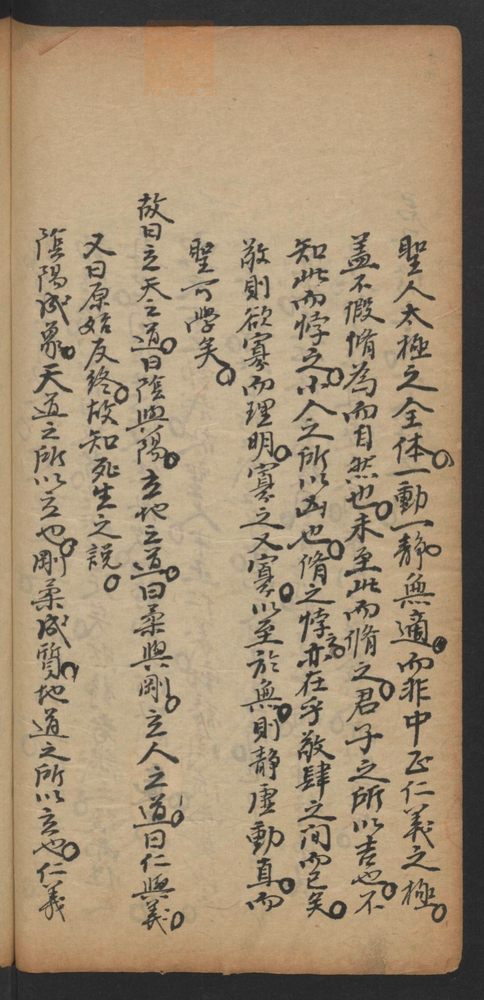 聖人太極之全体。一動一静。無適。而非中正仁義之極。
盖不假脩為而自然也。未至此而脩之。君子之所以吉也。不
知此而悖之。小人之所以凶也。脩之悖之。亦在乎敬肆之间而已矣。
敬則欲寡而理明。寡之又寡。以至於無。則静虚動直。而
聖可學矣。
故曰立天之道。曰陰與陽。立地之道。曰柔與剛。立人之道。曰仁與義。
又曰原始反終。故知死生之説。
陰陽成象。天道之所以立也。剛柔成質。地道之所以立也。仁義